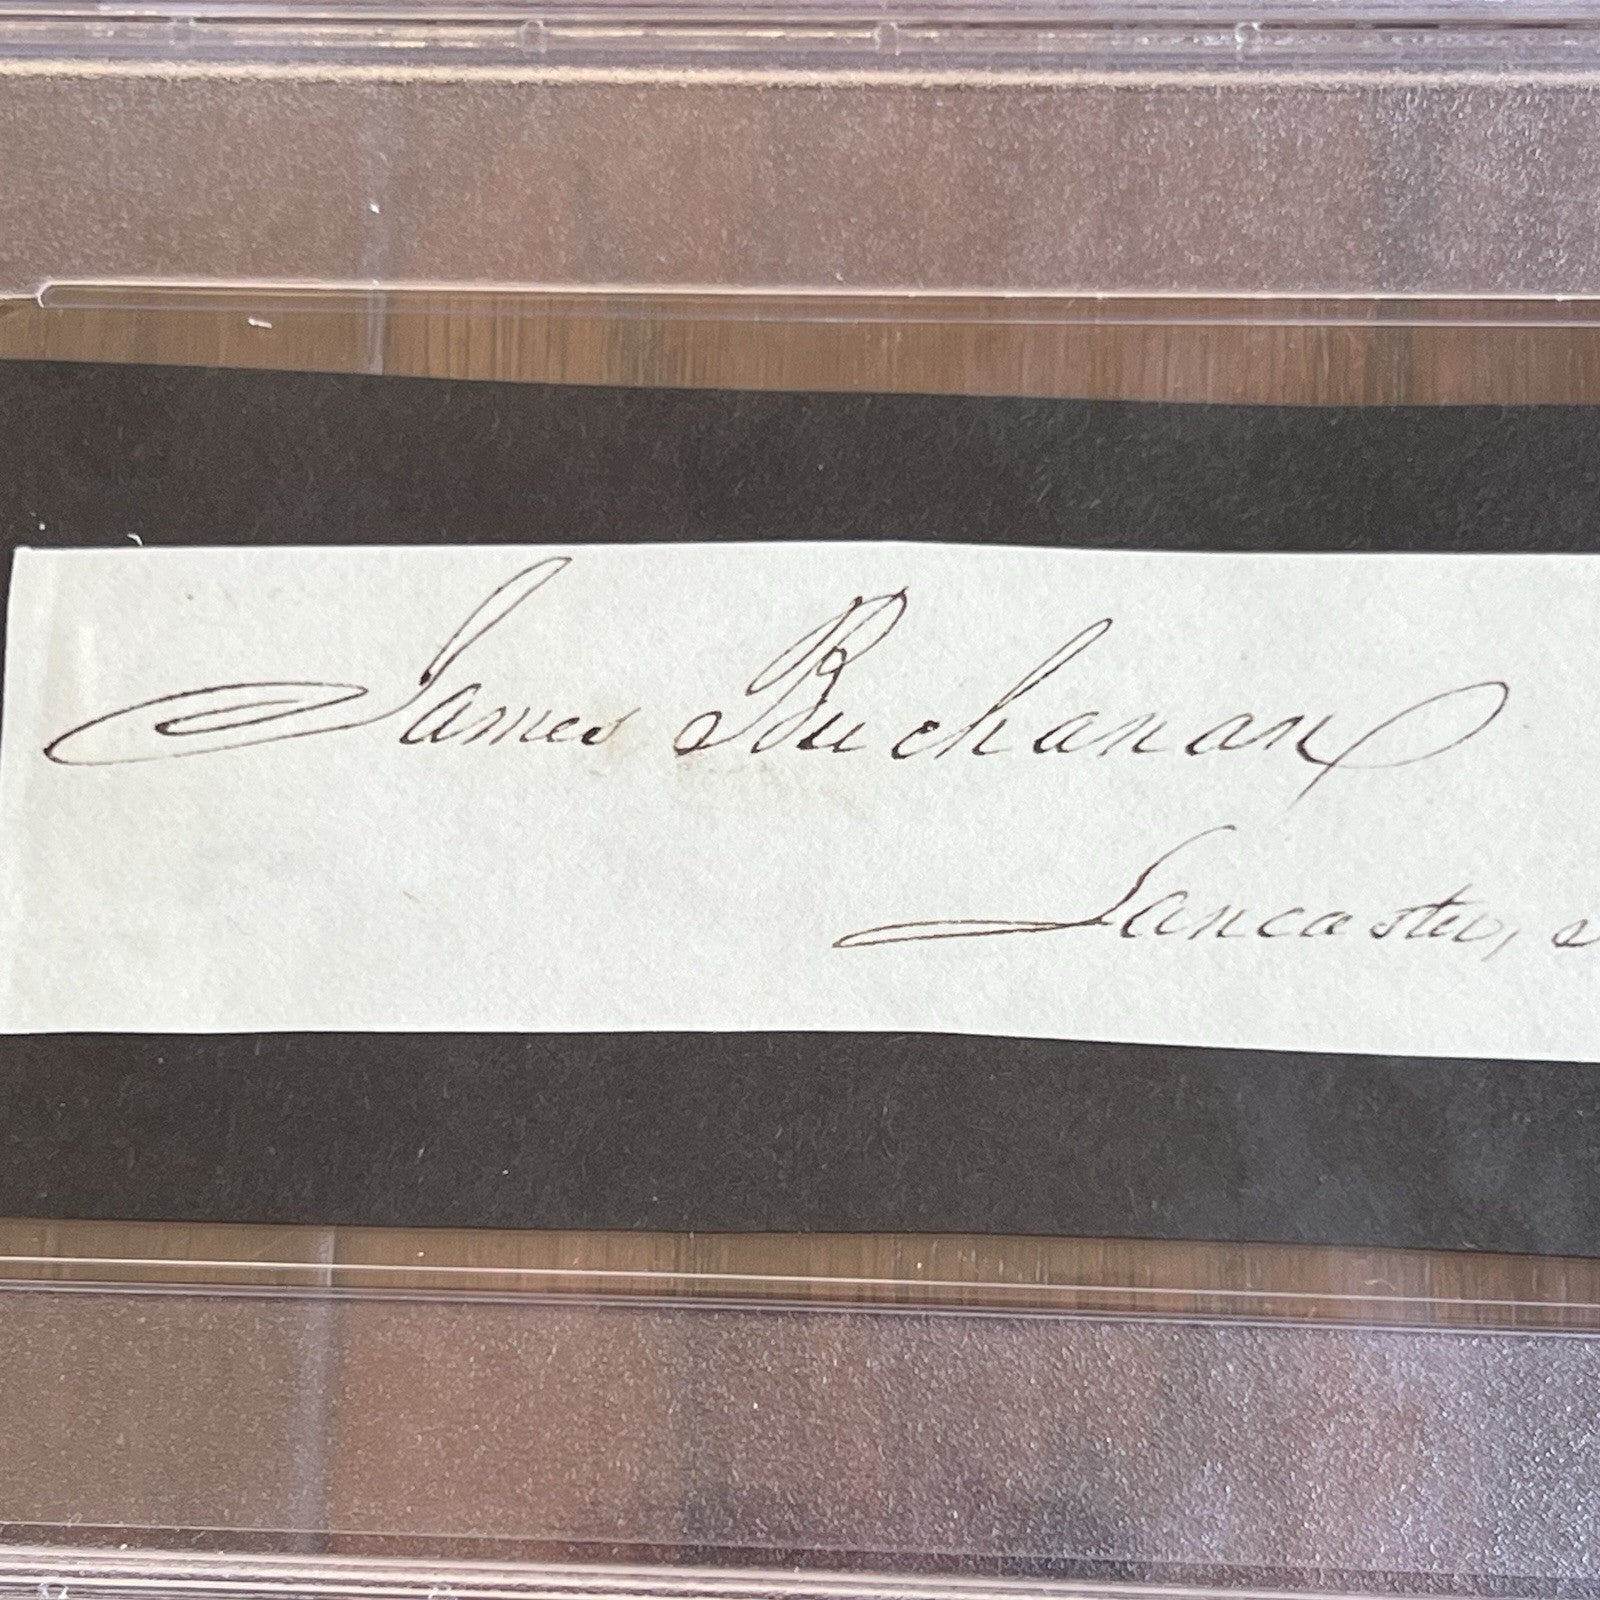 James Buchanan
Lancaster,